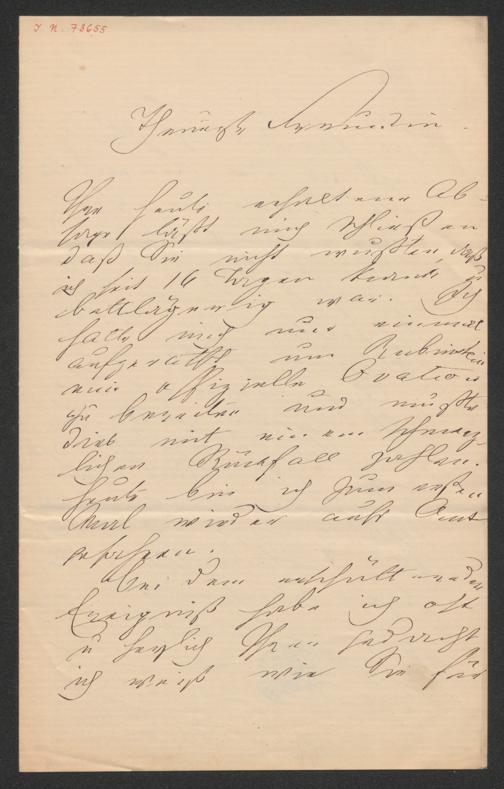 I. N. 73655
Theuerste Freundin.
Ihre heute erhaltene Ab-
sage läßt mich schließen
daß Sie nicht wußten, daß
ich seit 16 Tagen krank u
bettlägerig war. Ich
hatte mich nur einmal
aufgerafft um Rubinstein
eine offizielle Ovation
zu bereiten und mußte
dies mit einem schmerz-
lichen Rückfall zahlen.
Heute bin ich zum ersten
Mal wieder aufs Amt
gefahren.
Bei dem erschütternden
Ereigniß habe ich oft
u herzlich Ihrer gedacht
ich weiß wie Sie für